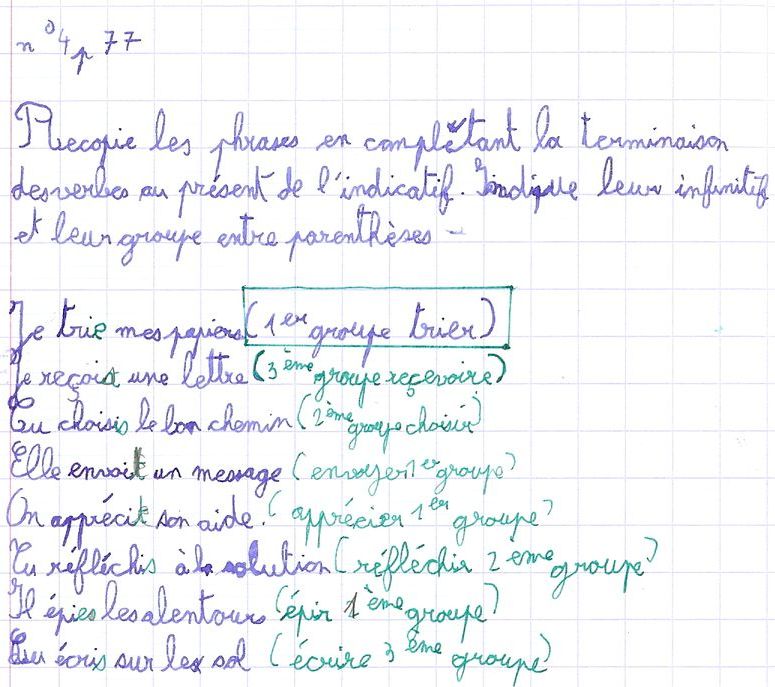 n° 4 p 77
Recopie les phrases en complétant la terminaison
des verbes au présent de l'indicatif. Indique leur infinitif
et leur groupe entre parenthèses -
Je trie mes papiers (1er groupe trier)
Je reçoist une lettre (3ème groupe reçevoire)
Tu choisis le bon chemin (2ème groupe choisir)
Elle envoit un message (envoyer 1er groupe)
On apprécit son aide. (apprécier 1er groupe)
Tu réfléchis à la solution (réfléchir 2ème groupe)
Il épies les alentours (épir 1ème groupe)
Tu écris sur les sol (écrire 3ème groupe)